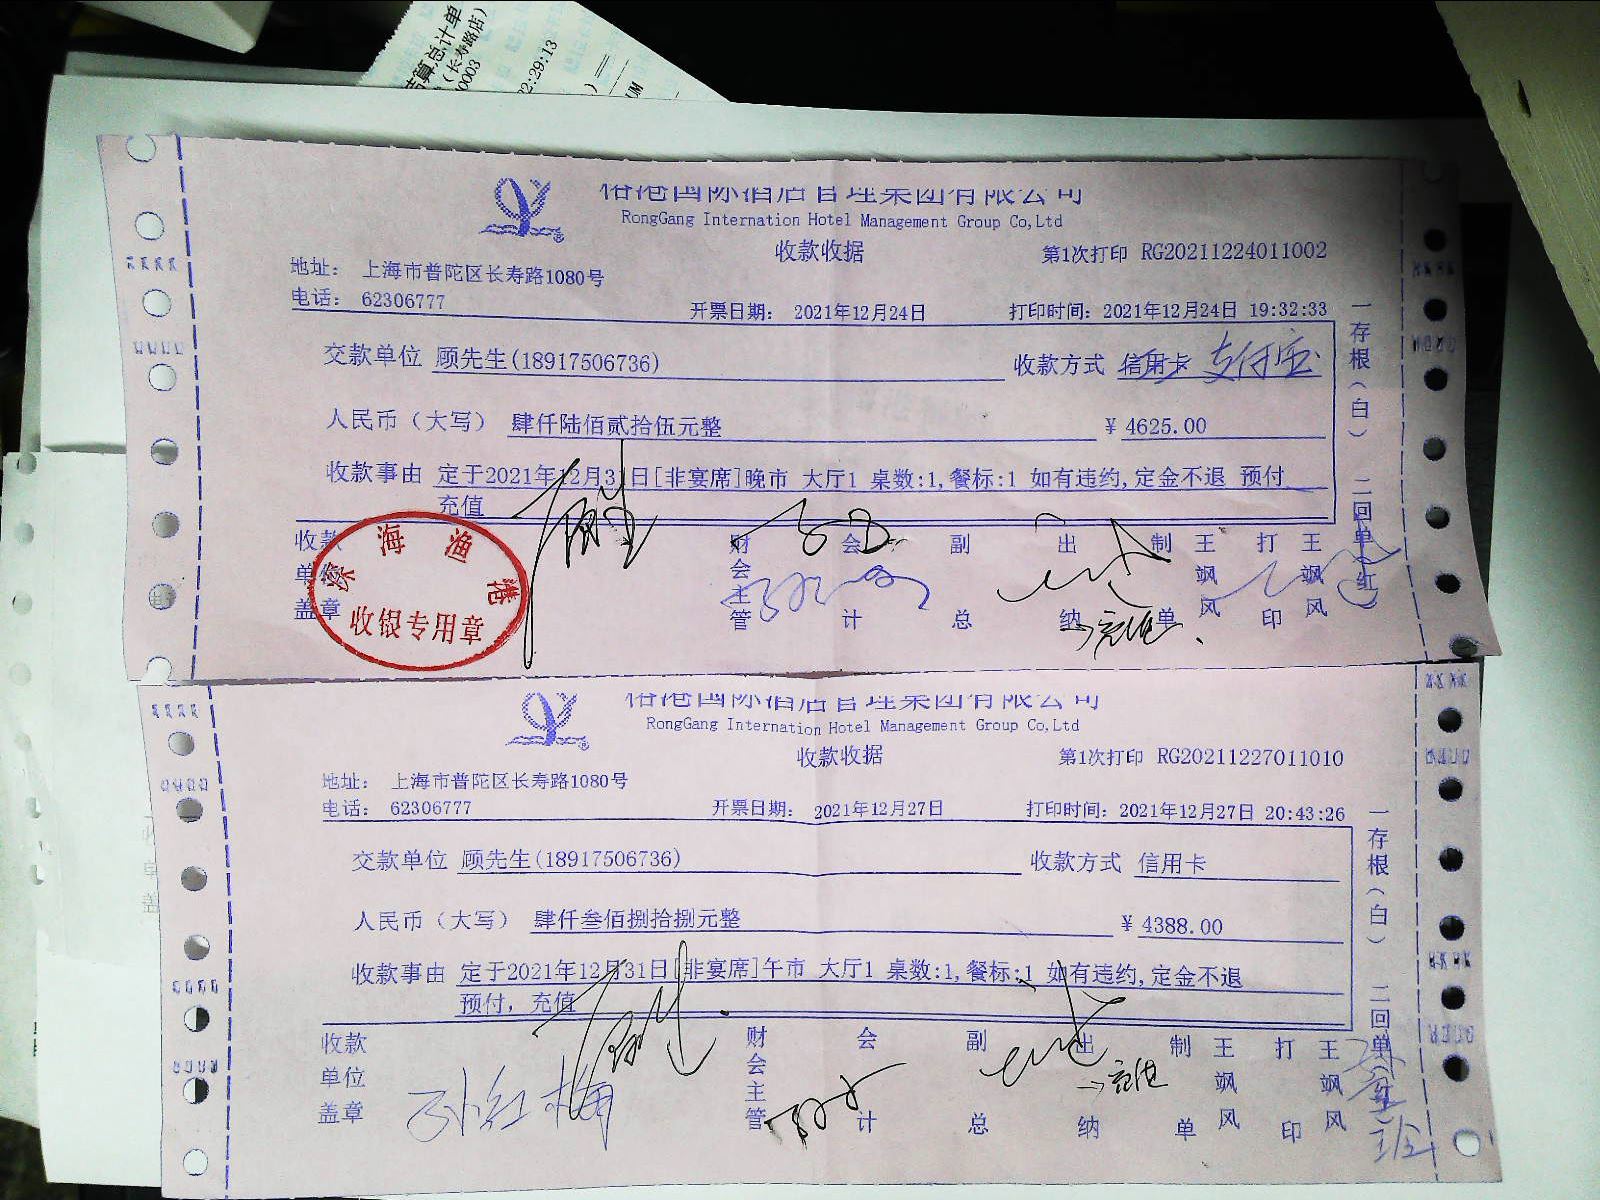 结算总计单
(长寿路店)
0003
22:29:13
国际酒店管理集团有限公司
RongGang Internation Hotel Management Group Co,Ltd
收款收据
第1次打印 RG20211224011002
地址： 上海市普陀区长寿路1080号
电话： 62306777
开票日期： 2021年12月24日
打印时间：2021年12月24日 19:32:33
交款单位 顾先生(18917506736)
收款方式 信用卡 支付宝
人民币（大写） 肆仟陆佰贰拾伍元整
¥ 4625.00
收款事由 定于2021年12月31日[非宴席]晚市 大厅1 桌数:1,餐标:1 如有违约,定金不退 预付
充值
收款单位盖章
财会主管
会计
副总
出纳
制单
王飒风
打印
王飒风
一存根（白） 二回单（红）
深海渔港
收银专用章
国际酒店管理集团有限公司
RongGang Internation Hotel Management Group Co,Ltd
收款收据
第1次打印 RG20211227011010
地址： 上海市普陀区长寿路1080号
电话： 62306777
开票日期： 2021年12月27日
打印时间：2021年12月27日 20:43:26
交款单位 顾先生(18917506736)
收款方式 信用卡
人民币（大写） 肆仟叁佰捌拾捌元整
¥ 4388.00
收款事由 定于2021年12月31日[非宴席]午市 大厅1 桌数:1,餐标:1 如有违约,定金不退
预付，充值
收款单位盖章
孙红梅
财会主管
会计
副总
出纳
制单
王飒风
打印
王飒风
一存根（白） 二回单（红）